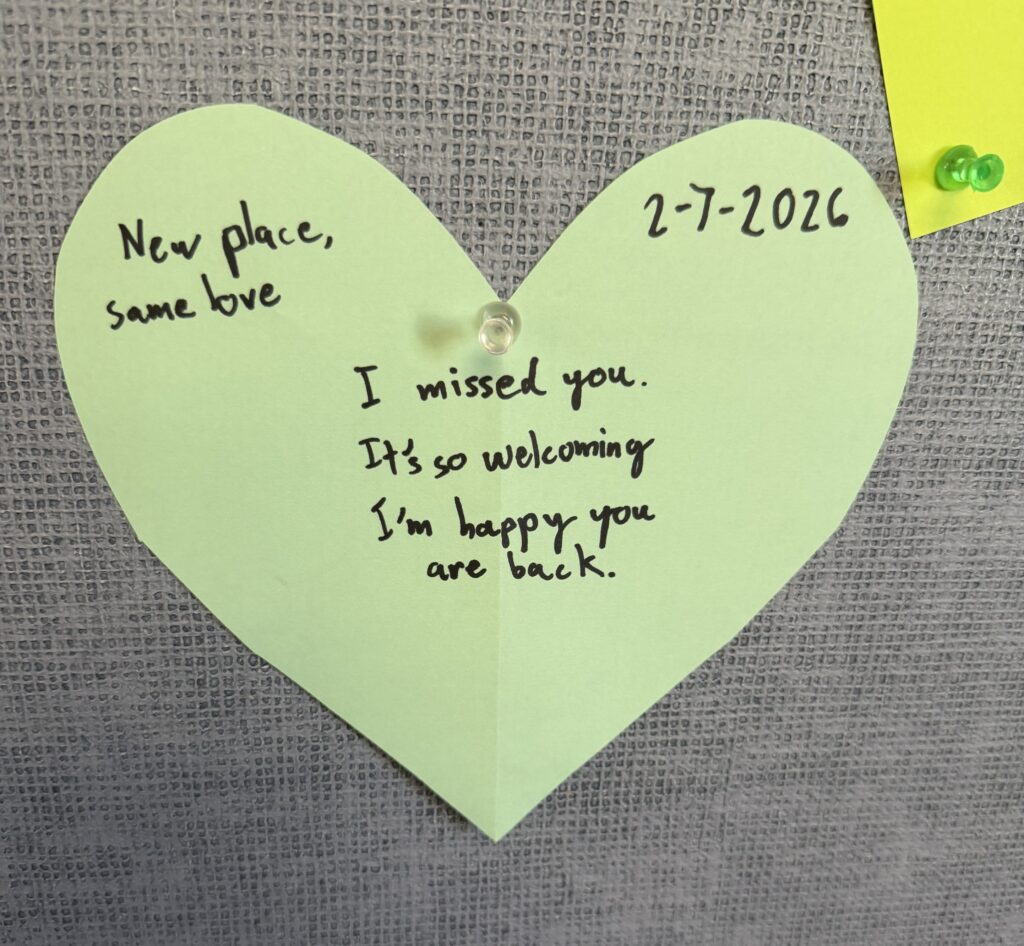 New place,
same love
2-7-2026
I missed you.
It's so welcoming
I'm happy you
are back.